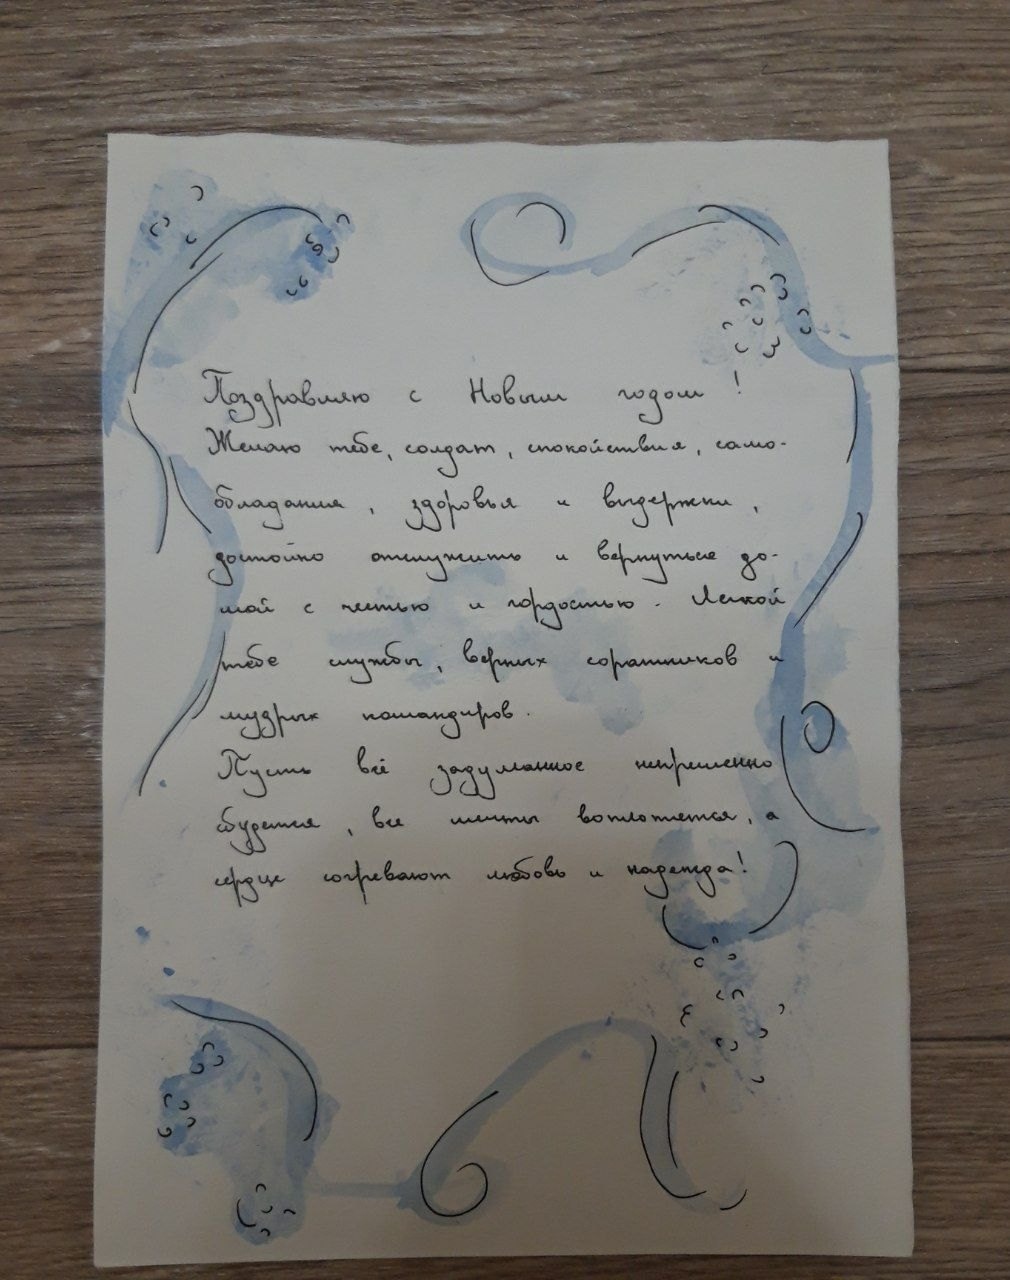 Поздравляю с Новым годом!
Желаю тебе, солдат, спокойствия, само-
обладания, здоровья и выдержки,
достойно отслужить и вернуться до-
мой с честью и гордостью. Легкой
тебе службы, верных соратников и
мудрых командиров.
Пусть всё задуманное непременно
сбудется, все мечты воплотятся, а
сердце согревают любовь и надежда!